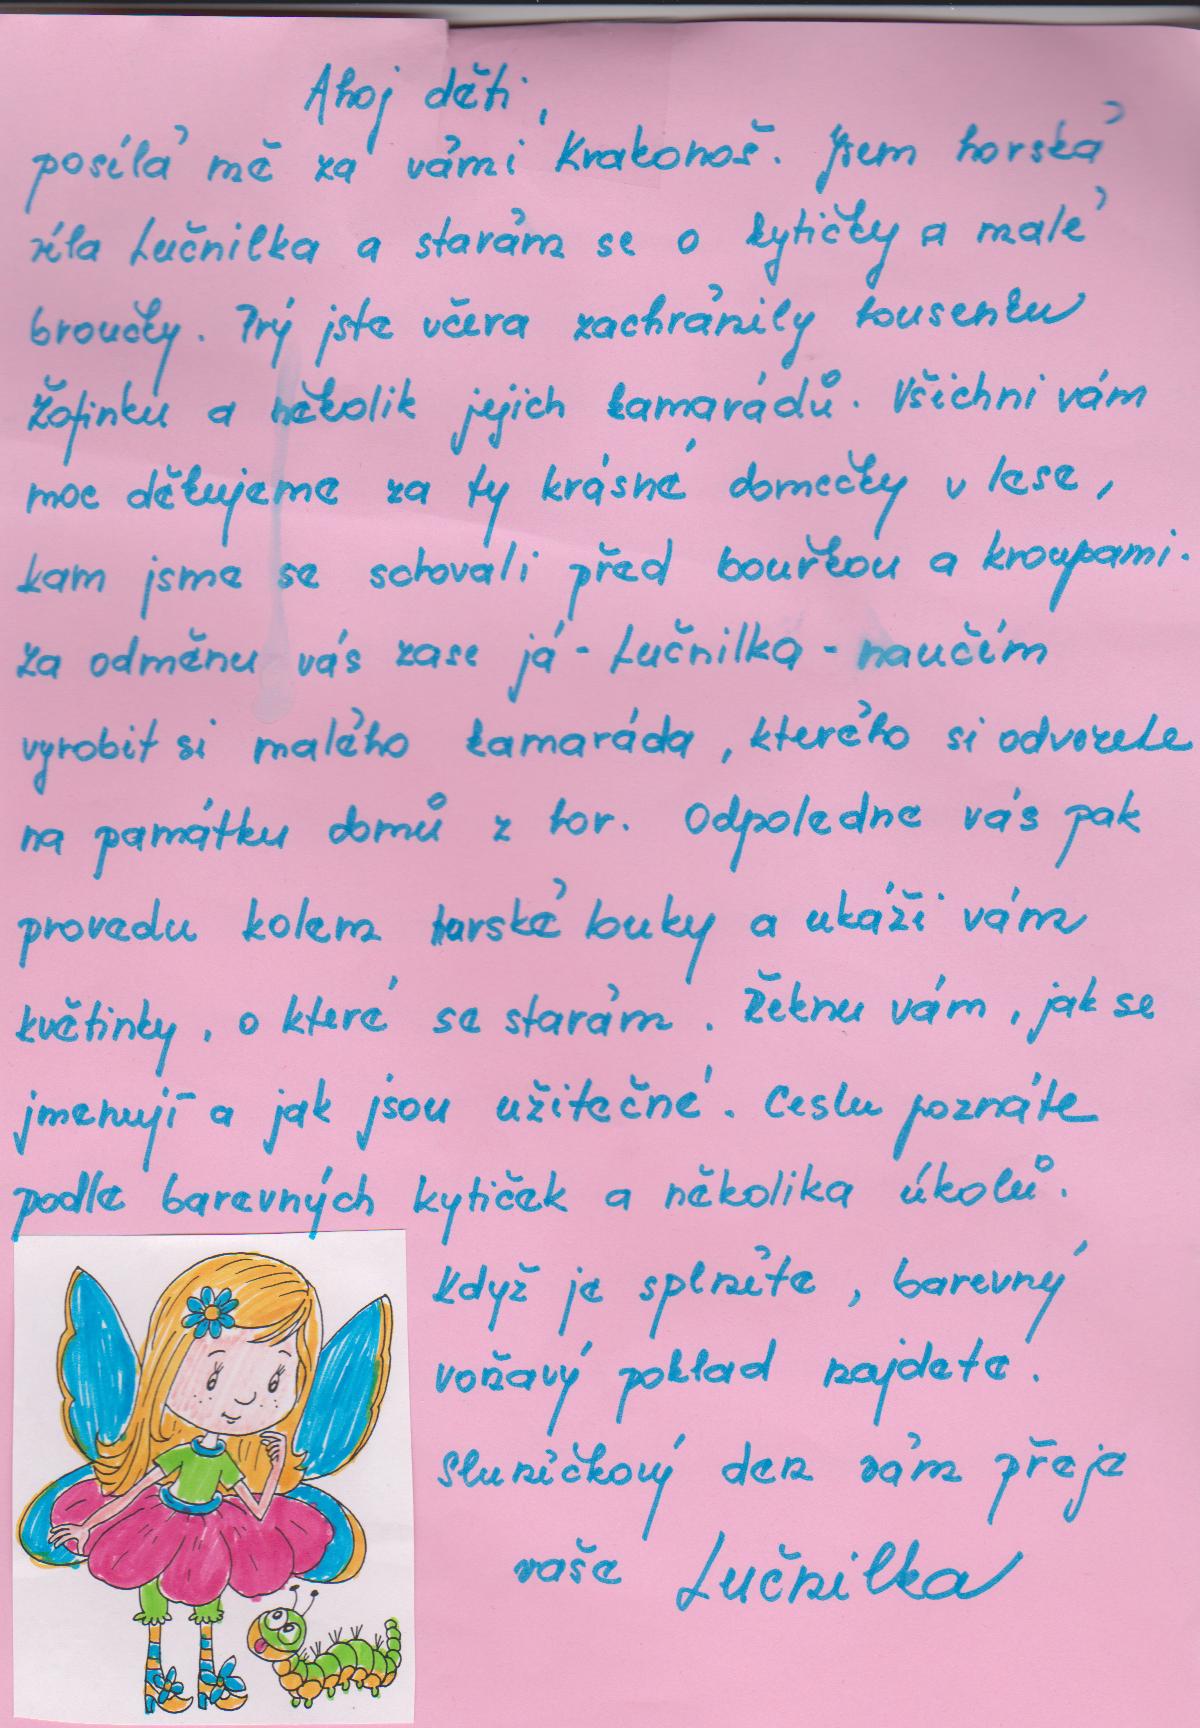 Ahoj děti,
posílá mě za vámi Krakonoš. Jsem horská
víla Lučnilka a starám se o kytičky a malé
broučky. Prý jste včera zachránily housenku
Žofinku a několik jejich kamarádů. Všichni vám
moc děkujeme za ty krásné domečky v lese,
kam jsme se schovali před bouřkou a kroupami.
Za odměnu vás zase já - Lučnilka - naučím
vyrobit si malého kamaráda, kterého si odvezete
na památku domů z hor. Odpoledne vás pak
provedu kolem horské bouky a ukáži vám
květinky, o které se starám. Řeknu vám, jak se
jmenují a jak jsou užitečné. Cestu poznáte
podle barevných kytiček a několika úkolů.
Když je splníte, barevný
voňavý poklad najdete.
Sluníčkový den vám přeje
vaše Lučnilka